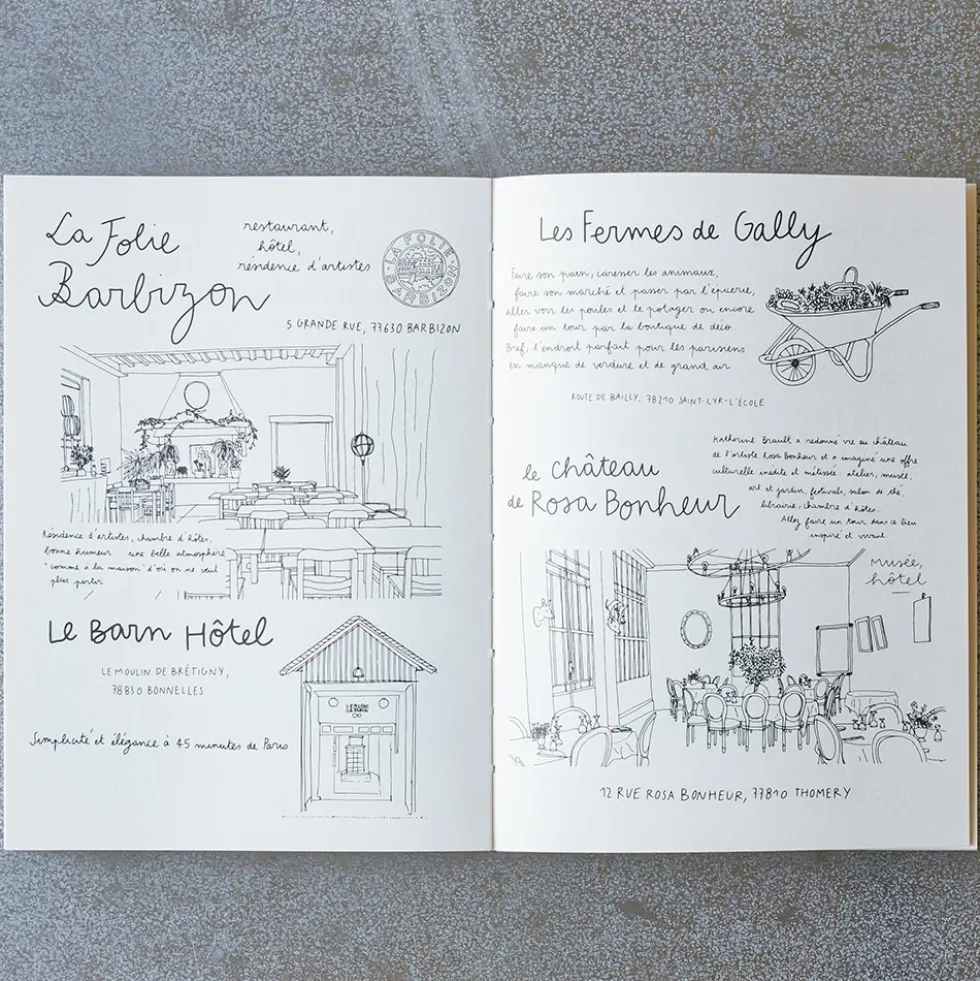 La Folie
Barbizon
restaurant,
hôtel,
résidence d'artistes
LA FOLIE BARBIZON
5 GRANDE RUE, 77630 BARBIZON
Résidence d'artistes, chambre d'hôtes,
bonne humeur une belle atmosphère
"comme à la maison" d'où on ne veut
plus partir
Le Barn Hôtel
LE MOULIN DE BRÉTIGNY,
78830 BONNELLES
Simplicité et élégance à 45 minutes de Paris
Les Fermes de Gally
Faire son pain, caresser les animaux,
faire son marché et passer par l'épicerie,
aller voir les poules et le potager ou encore
faire un tour par la boutique de déco
Bref, l'endroit parfait pour les parisiens
en manque de verdure et de grand air
ROUTE DE BAILLY, 78210 SAINT-CYR-L'ECOLE
le Château
de Rosa Bonheur
Katherine Brault a redonné vie au château
de l'artiste Rosa Bonheur et a imaginé une offre
culturelle inédite et métissée: atelier, musée,
art et jardin, festivals, salon de thé,
librairie, chambre d'hôtes...
Allez faire un tour dans ce lieu
inspiré et vivant
Musée,
hôtel
12 RUE ROSA BONHEUR, 77810 THOMERY